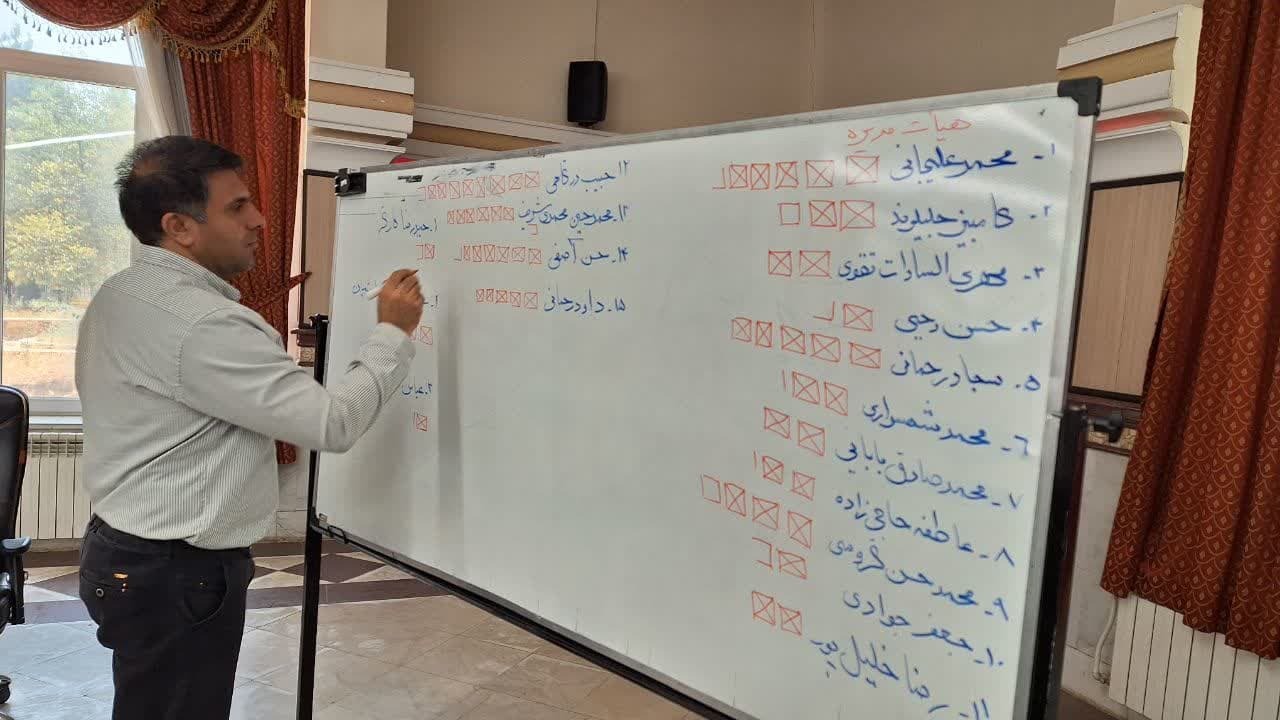 هیات مدیره
۱- محمد علیجانی
۲- کامبیز جلیلوند
۳- مهری السادات تقوی
۴- حسن رجبی
۵- سجاد رحمانی
۶- محمد شهسواری
۷- محمد صادق بابایی
۸- عاطفه حاجی زاده
۹- محمد حسن گروسی
۱۰- جعفر جوادی
۱۱- رضا خلیل پور
۱۲- حبیب
۱۳- محمد حسین محمدی شریف
۱۴- حسن آصفی
۱۵- داود رحمانی
۱. حمیدرضا
۲. عباس